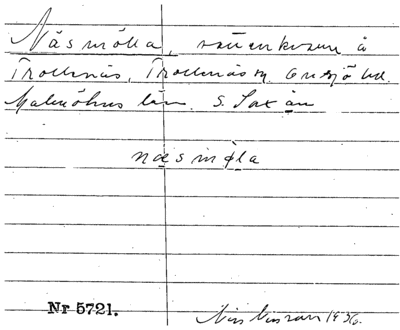 Näsmölla, vattenkvarn å
Trollenäs, Trollenäs sn. Onsjö hd.
Malmöhus län. S. Sax ån
næsmøla
Nr 5721.
1936.